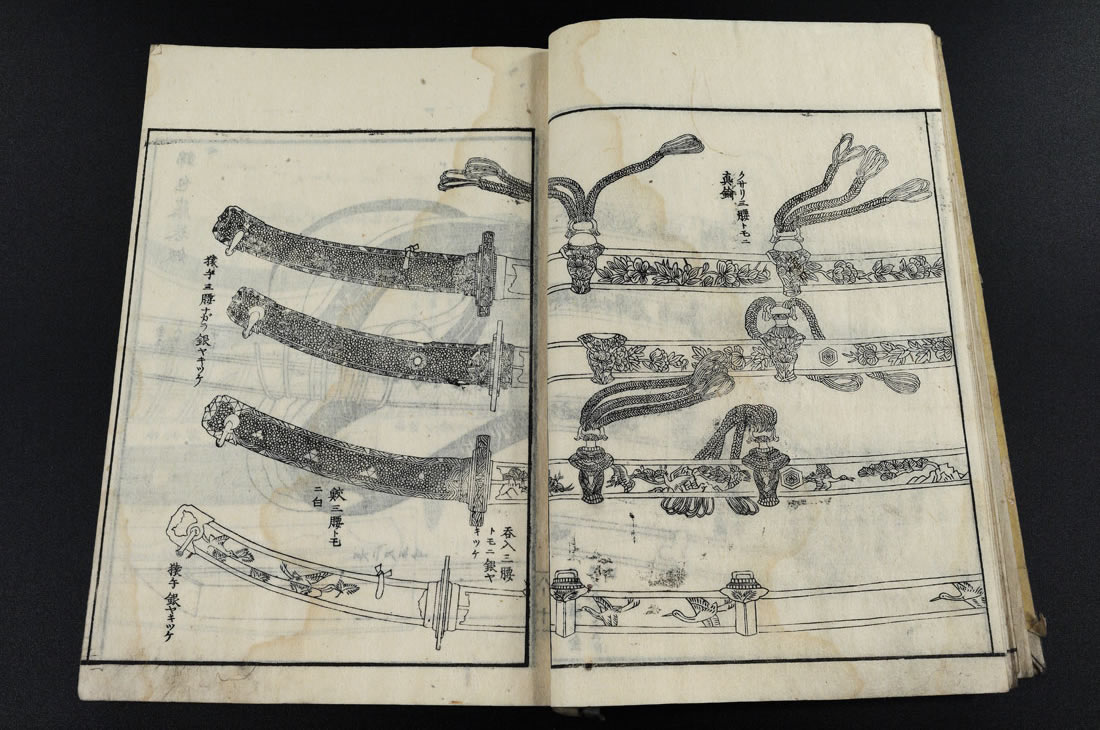 クサリ三腰トモニ
真鍮
呑入三腰
トモニ銀ヤ
キツケ
鮫三腰トモ
ニ白
猿手三腰ナガラ銀ヤキツケ
猿手銀ヤキツケ